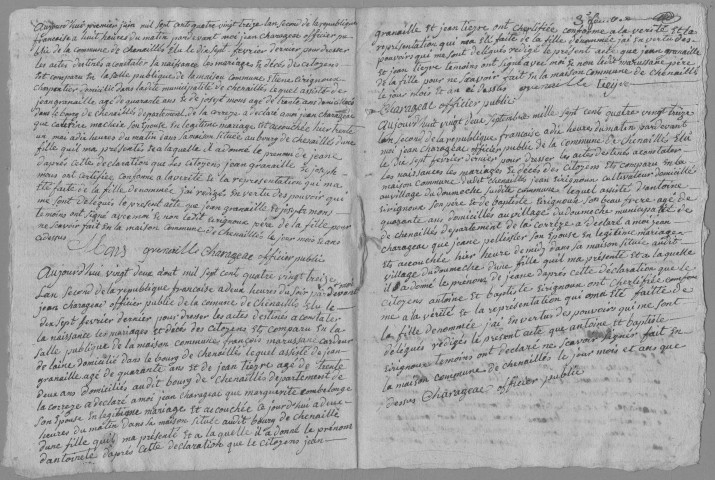 aujourd'huy premier juin mil sept cent quatre vingt treize l'an second de la republique
francaise a huit heures du matin par devant moy jean charageac officier pu-
blic de la commune de chenaillés elu le dix sept fevrier dernier pour dresser
les actes destinés a constater la naissance les mariages et décès des citoyens
est comparu en la salle publique de la maison commune etiene cirignoux
charpentier domicilié dans ladite municipalité de chenaillés lequel assisté de
jean granaille agé de quarante ans et de joseph mons agé de trante ans domiciliés
dans le bourg de chenaillés departement de la correze a déclaré a moy jean charageac
que son epouse en legitime mariage est accouchée hier trente
un mai a dix heures du matin dans sa maison située au bourg de chenaillés d'une
fille quil m'a présenté et a laquelle il a donné le prenom de jeane
d'après cette declaration que les citoyens jean granaille et joseph
mons ont certifiée conforme a la verité et la représentation qui m'a
eté faite de la fille denommée j'ai redigé en vertu des pouvoirs qui me
sont delegués le présent acte que jean granaille et joseph mons
temoins ont signé avec moi et non ledit cirignoux père de la fille pour
ne scavoir fait en la maison commune de chenaillés le jour mois et ans
cidessus
Mons granaille Charageac officier public
Aujourd'huy vingt deux aout mil sept cent quatre vingt treize
L'an second de la republique francaise a deux heures du soir par devant moi
jean charageac officier public de la commune de Chenaillés Elu le
dix sept fevrier dernier pour dresser les actes destinés a constater
la naissance les mariages et décès des Citoyens Est Comparu En la
Salle publique de la maison commune françois marussane cardeur
de laine domicilié dans le bourg de chenaillé lequel assisté de jean
granaille agé de quarante ans et de jean tieyre agé de trente
deux ans domiciliés audit bourg de chenaillés departement de
la correze a déclaré a moi jean charageac que marguerite
Son Epouse En legitime mariage est accouchée ce jourd'hui a deux
heures du matin dans sa maison située audit bourg de chenaillé
d'une fille quil m'a présenté et a la quelle il a donné le prénom
d'antoinete d'après cette declaration que le citoyens jean
granaille et jean tieyre ont Certifiée conforme a la verité et la
representation qui m'en eté faite de la fille denommée j'ai en vertu des
pouvoirs que me sont delegués redigé le présent acte que jean granaille
et jean tieyre temoins ont signé avec moi et non ledit marussane père
de la fille pour ne scavoir fait en la maison commune de chenaillé
le jour mois et an ci dessus granaille tieyre
Charageac officier public
Aujourd'huy vingt deux septembre mille sept cent quatre vingt treize
l'an second de la republique francaise a dix heures du matin par devant
moi jean charageac officier public de la commune de chenaillés Elu
le dix sept fevrier dernier pour dresser les actes destinés a constater
les naissances les mariages et décès des citoyens est comparu en la
maison commune dudit chenaillé jean sirignoux cultivateur domicilié
au village du doumeche susdite commune lequel assisté d'antoine
sirignoux son père et de baptiste sirignoux son beau frere agé de
quarante ans domiciliés au village du doumeche municipalité de
chenaillés departement de la correze a déclaré a moi jean
charageac que jeane pellissier son epouse en legitime mariage
est accouchée hier heure de midy dans sa maison située audit
village du doumeche d'une fille quil m'a présenté et a laquelle
il a donné le prénom de jeane d'après cette declaration que le
citoyens antoine et baptiste sirignoux ont Certifiée confor-
me a la vérité et la représentation qui m'a eté faite de
la fille dénommée j'ai En vertu des pouvoirs qui me sont
delegués redigé le présent acte que antoine et baptiste
sirignoux temoins ont déclaré ne scavoir signer fait en
la maison commune de chenaillés le jour mois et an que
dessus Charageac officier public